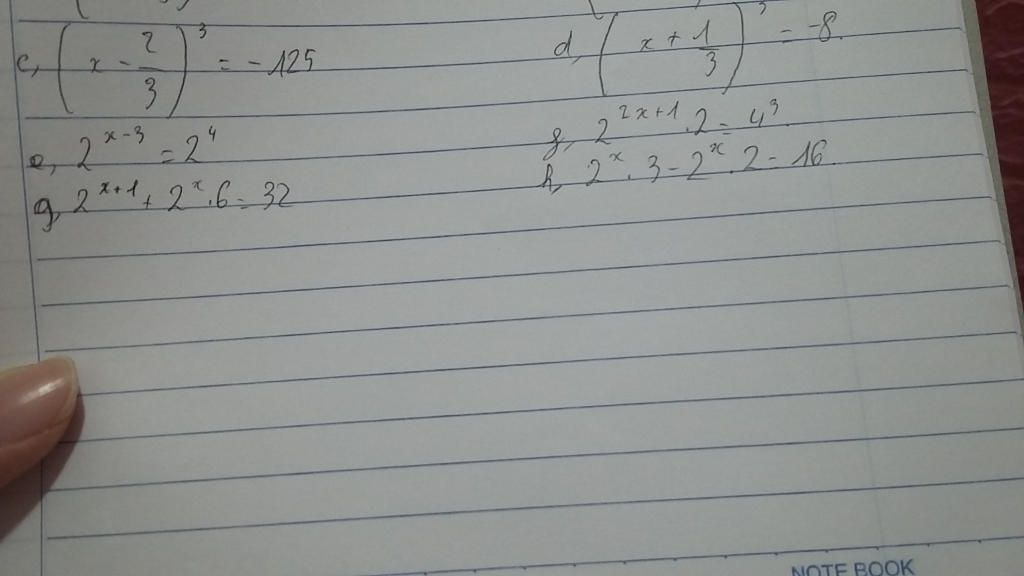 c, (x - 2/3)³ = -125
d, (x + 1/3)³ = -8.
e, 2^(x-3) = 2⁴
f, 2^(2x+1) . 2 = 4³.
g, 2^(x+1) + 2^x . 6 = 32
h, 2^x . 3 - 2^x . 2 = 16.
NOTE BOOK